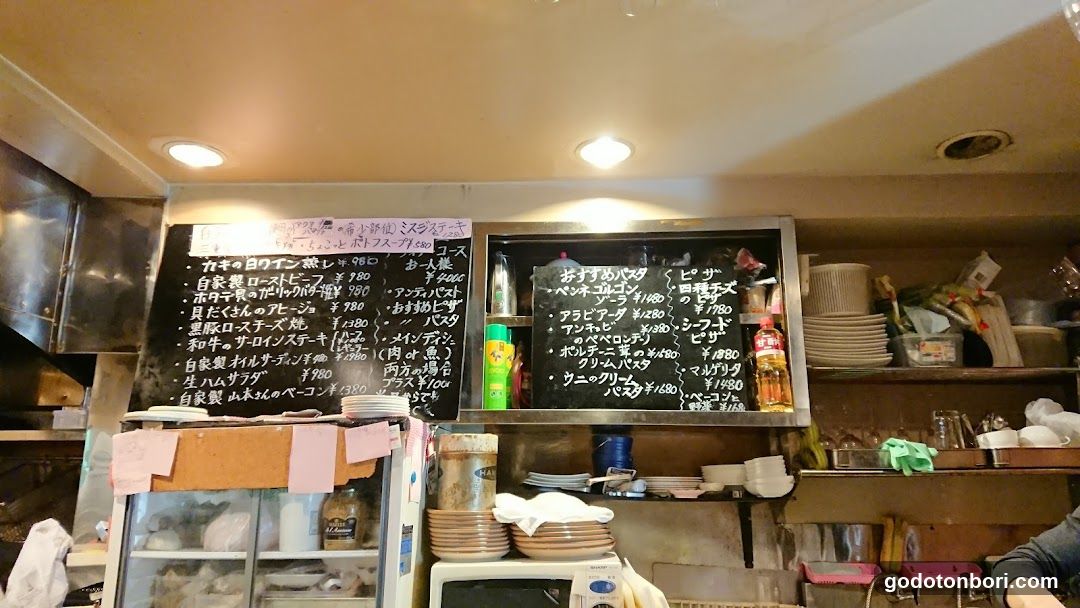 の(希少部位)ミスジステーキ
ちょこっとポトフスープ¥580
・カキの白ワイン蒸し ¥980
・自家製ローストビーフ ¥980
ホタテ貝のガーリックバター ¥980
・具だくさんのアヒージョ ¥980
・黒豚ロースチーズ焼 ¥1380
・和牛のサーロインステーキ ¥1980
・自家製オイルサーディン ¥980
・生ハムサラダ ¥980
・自家製 山本さんのベーコン ¥1380
コース
お一人様
・アンティパスト
・おすすめピザ
・〃 パスタ
・メインディシュ
(肉 or 魚)
両方の場合
プラス
おすすめパスタ
・ペンネゴルゴン
ゾーラ ¥1480
・アラビアータ ¥1280
・アンチョビ ¥1380
のペペロンチーノ
・ポルチーニ茸の
クリームパスタ
・ウニのクリーム
パスタ ¥1680
・ピザ
四種チーズ
のピザ
¥1980
・シーフード
ピザ
¥1880
・マルゲリタ
¥1480
・ベーコンと
野菜
SHARP
godotonbori.com